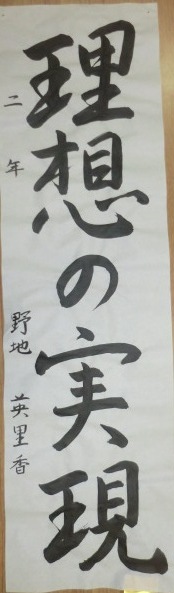 理想の実現
二年 野地 英里香